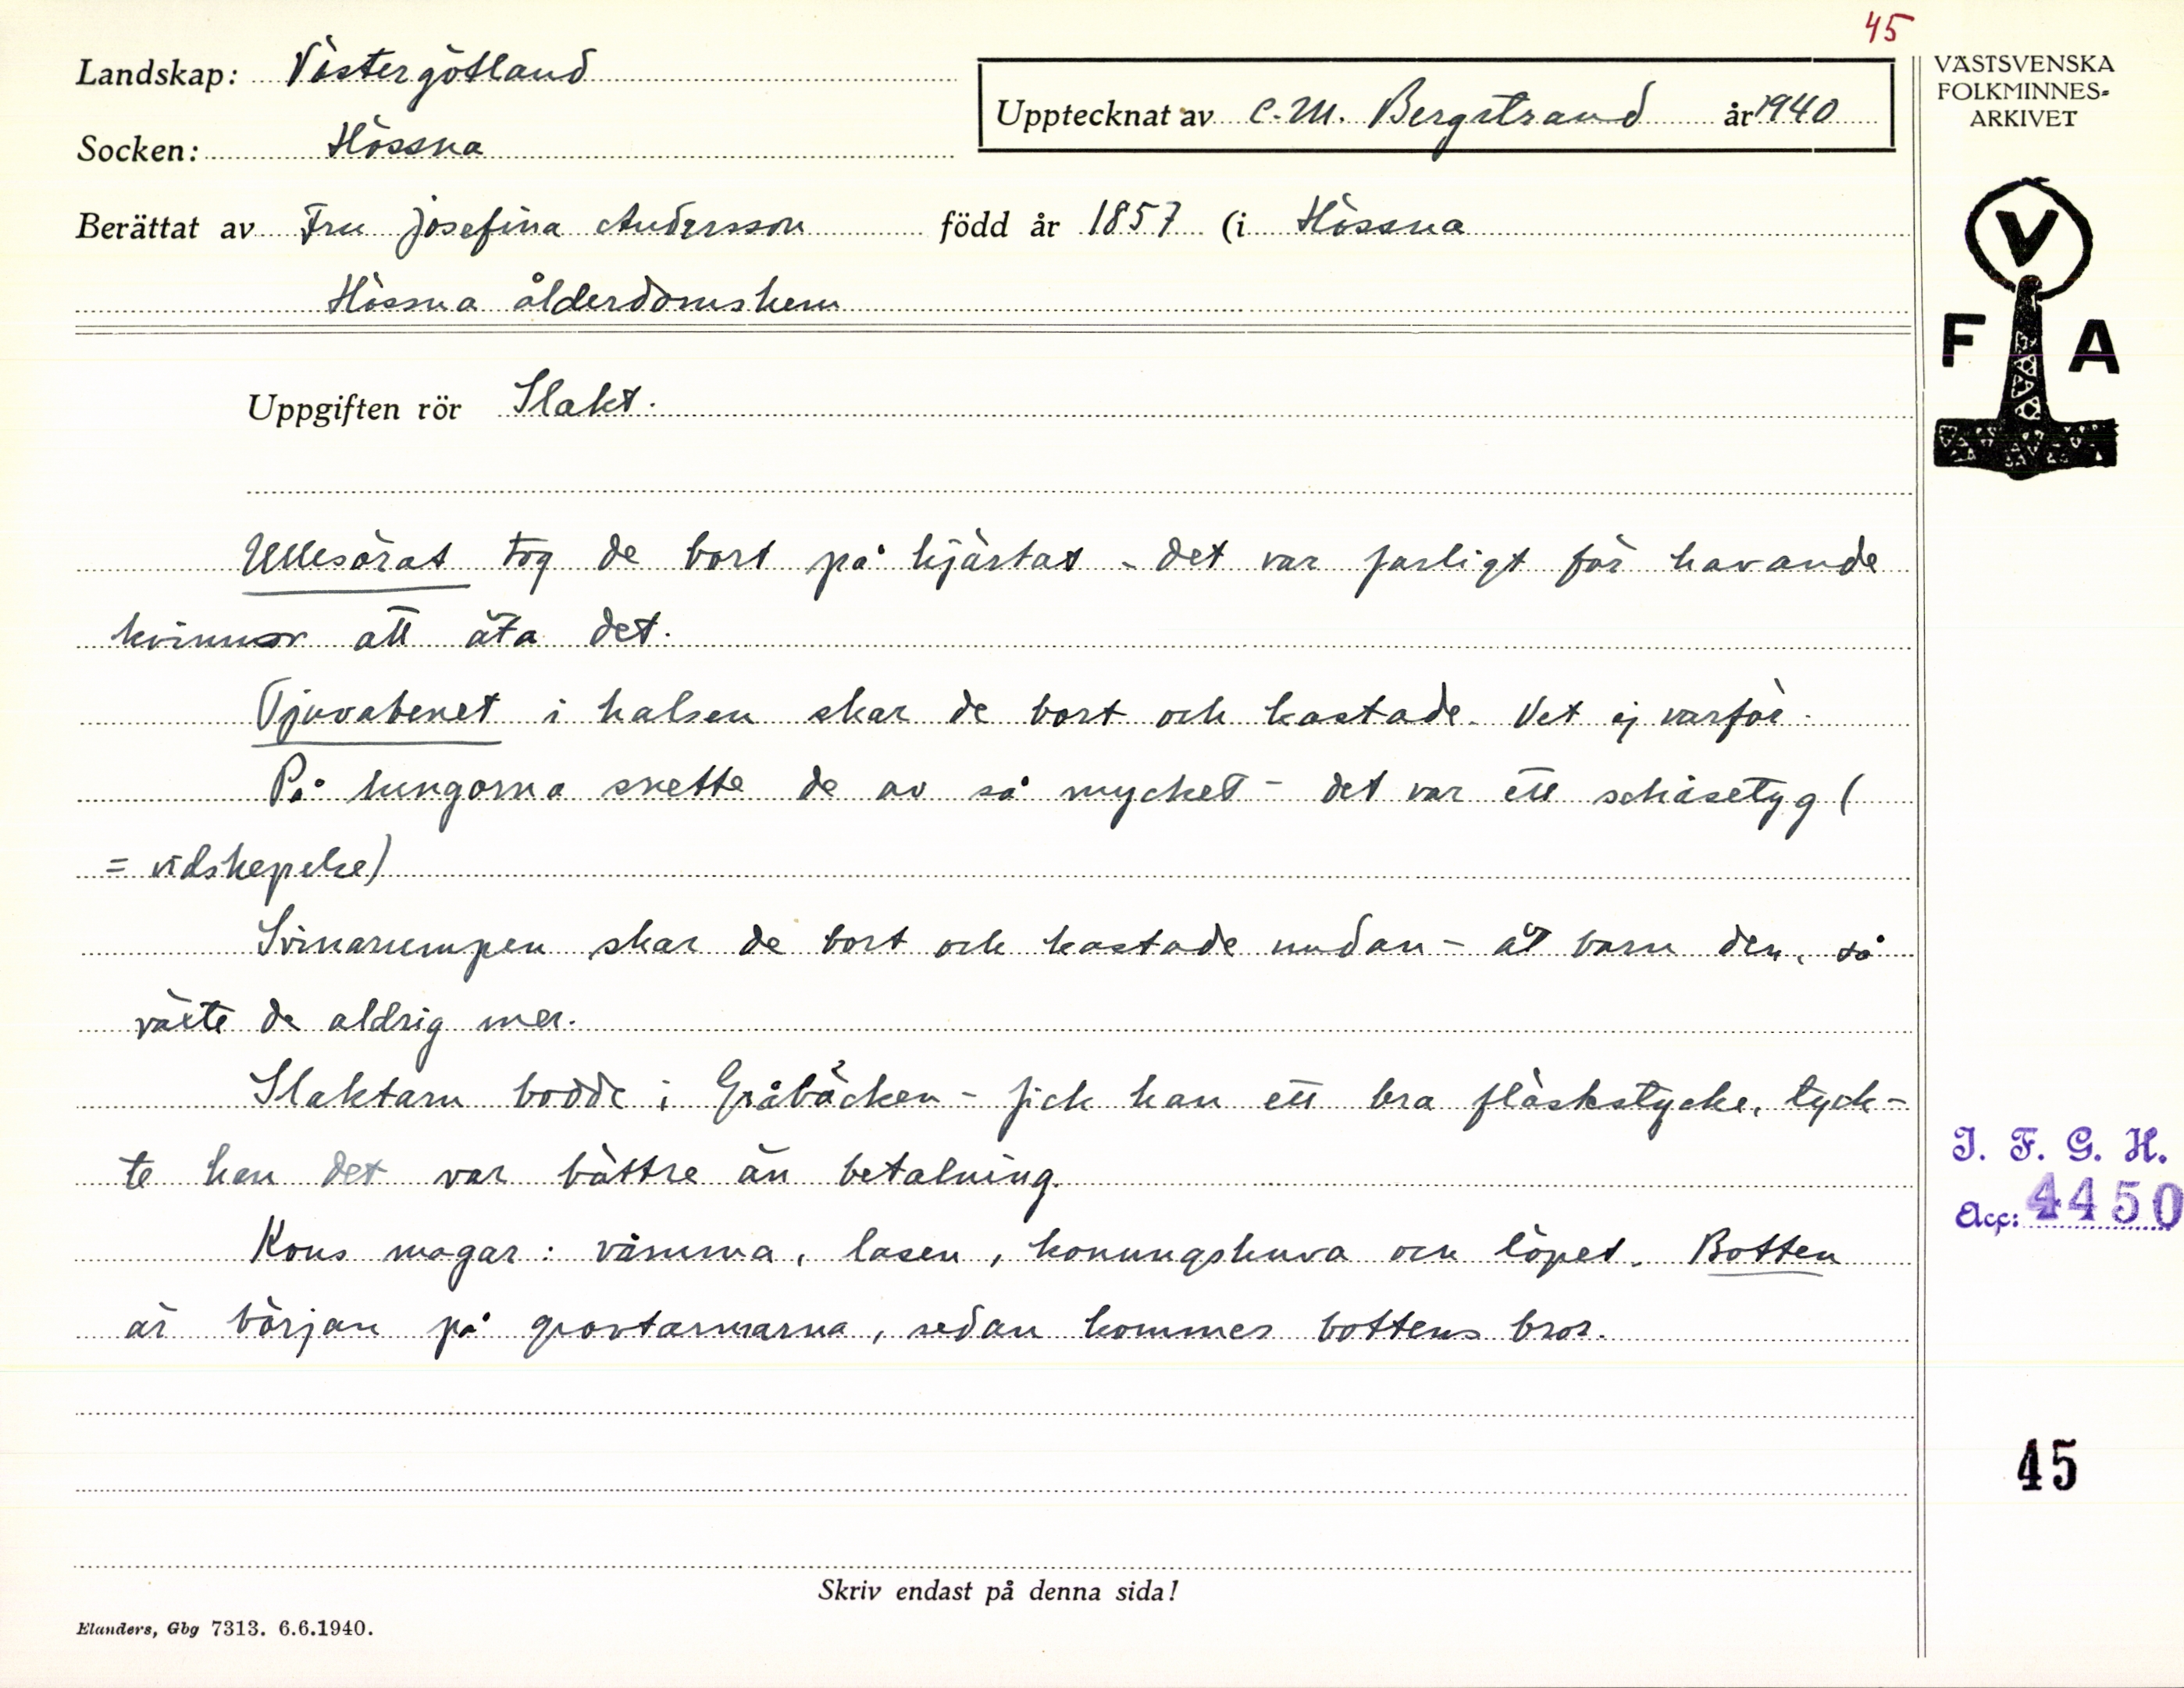 45
Landskap: Västergötland
Socken: Hössna
Upptecknat av C.M. Bergstrand år 1940
VÄSTSVENSKA
FOLKMINNES-
ARKIVET
Berättat av Fru Josefina Andersson född år 1857 (i Hössna
Hössna ålderdomshem
V
F A
Uppgiften rör Slakt.
Ullesörat tog de bort på hjärtat - det var farligt för havande
kvinnor att äta det.
Tjuvabenet i halsen skar de bort och kastade. Vet ej varför.
På lungorna snette de av så mycket - det var ett schåsetyg (
= vidskepelse)
Svinarumpen skar de bort och kastade undan - åt barn den, så
växte de aldrig mer.
Slaktarn bodde i Gråbäcken - fick han ett bra fläskstycke, tyck-
te han det var bättre än betalning.
Kons magar: våmma, lasen, konungshuva och löpet. Botten
är början på grovtarmarna, sedan kommer bottens bror.
I. F. G. H.
Acc: 4450
45
Skriv endast på denna sida!
Elanders, Gbg 7313. 6.6.1940.